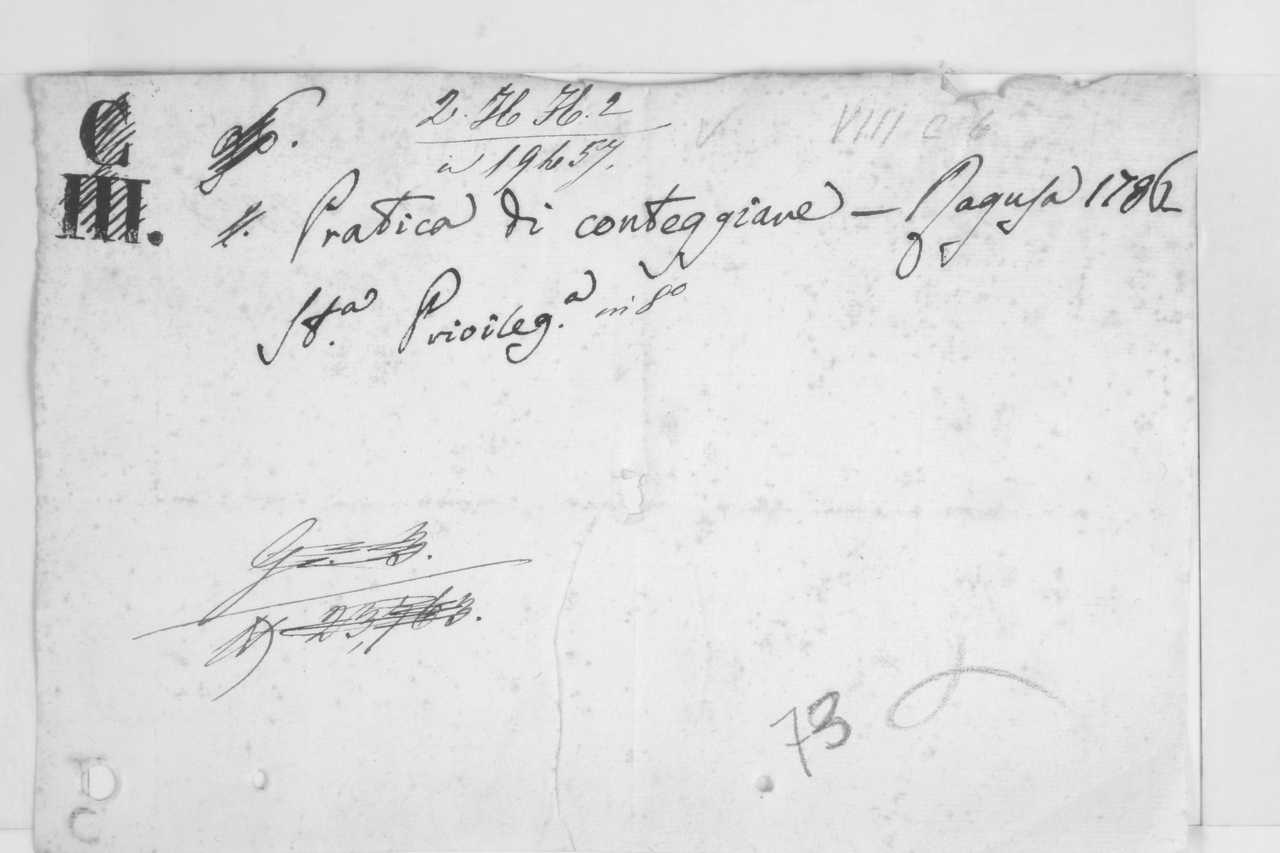 C
III.
2. H H. 2
19457.
VIIII c 6
Pratica di conteggiare — Ragusa 1786
St.ª Privileg.ª in 8º
G. B.
23,763.
73